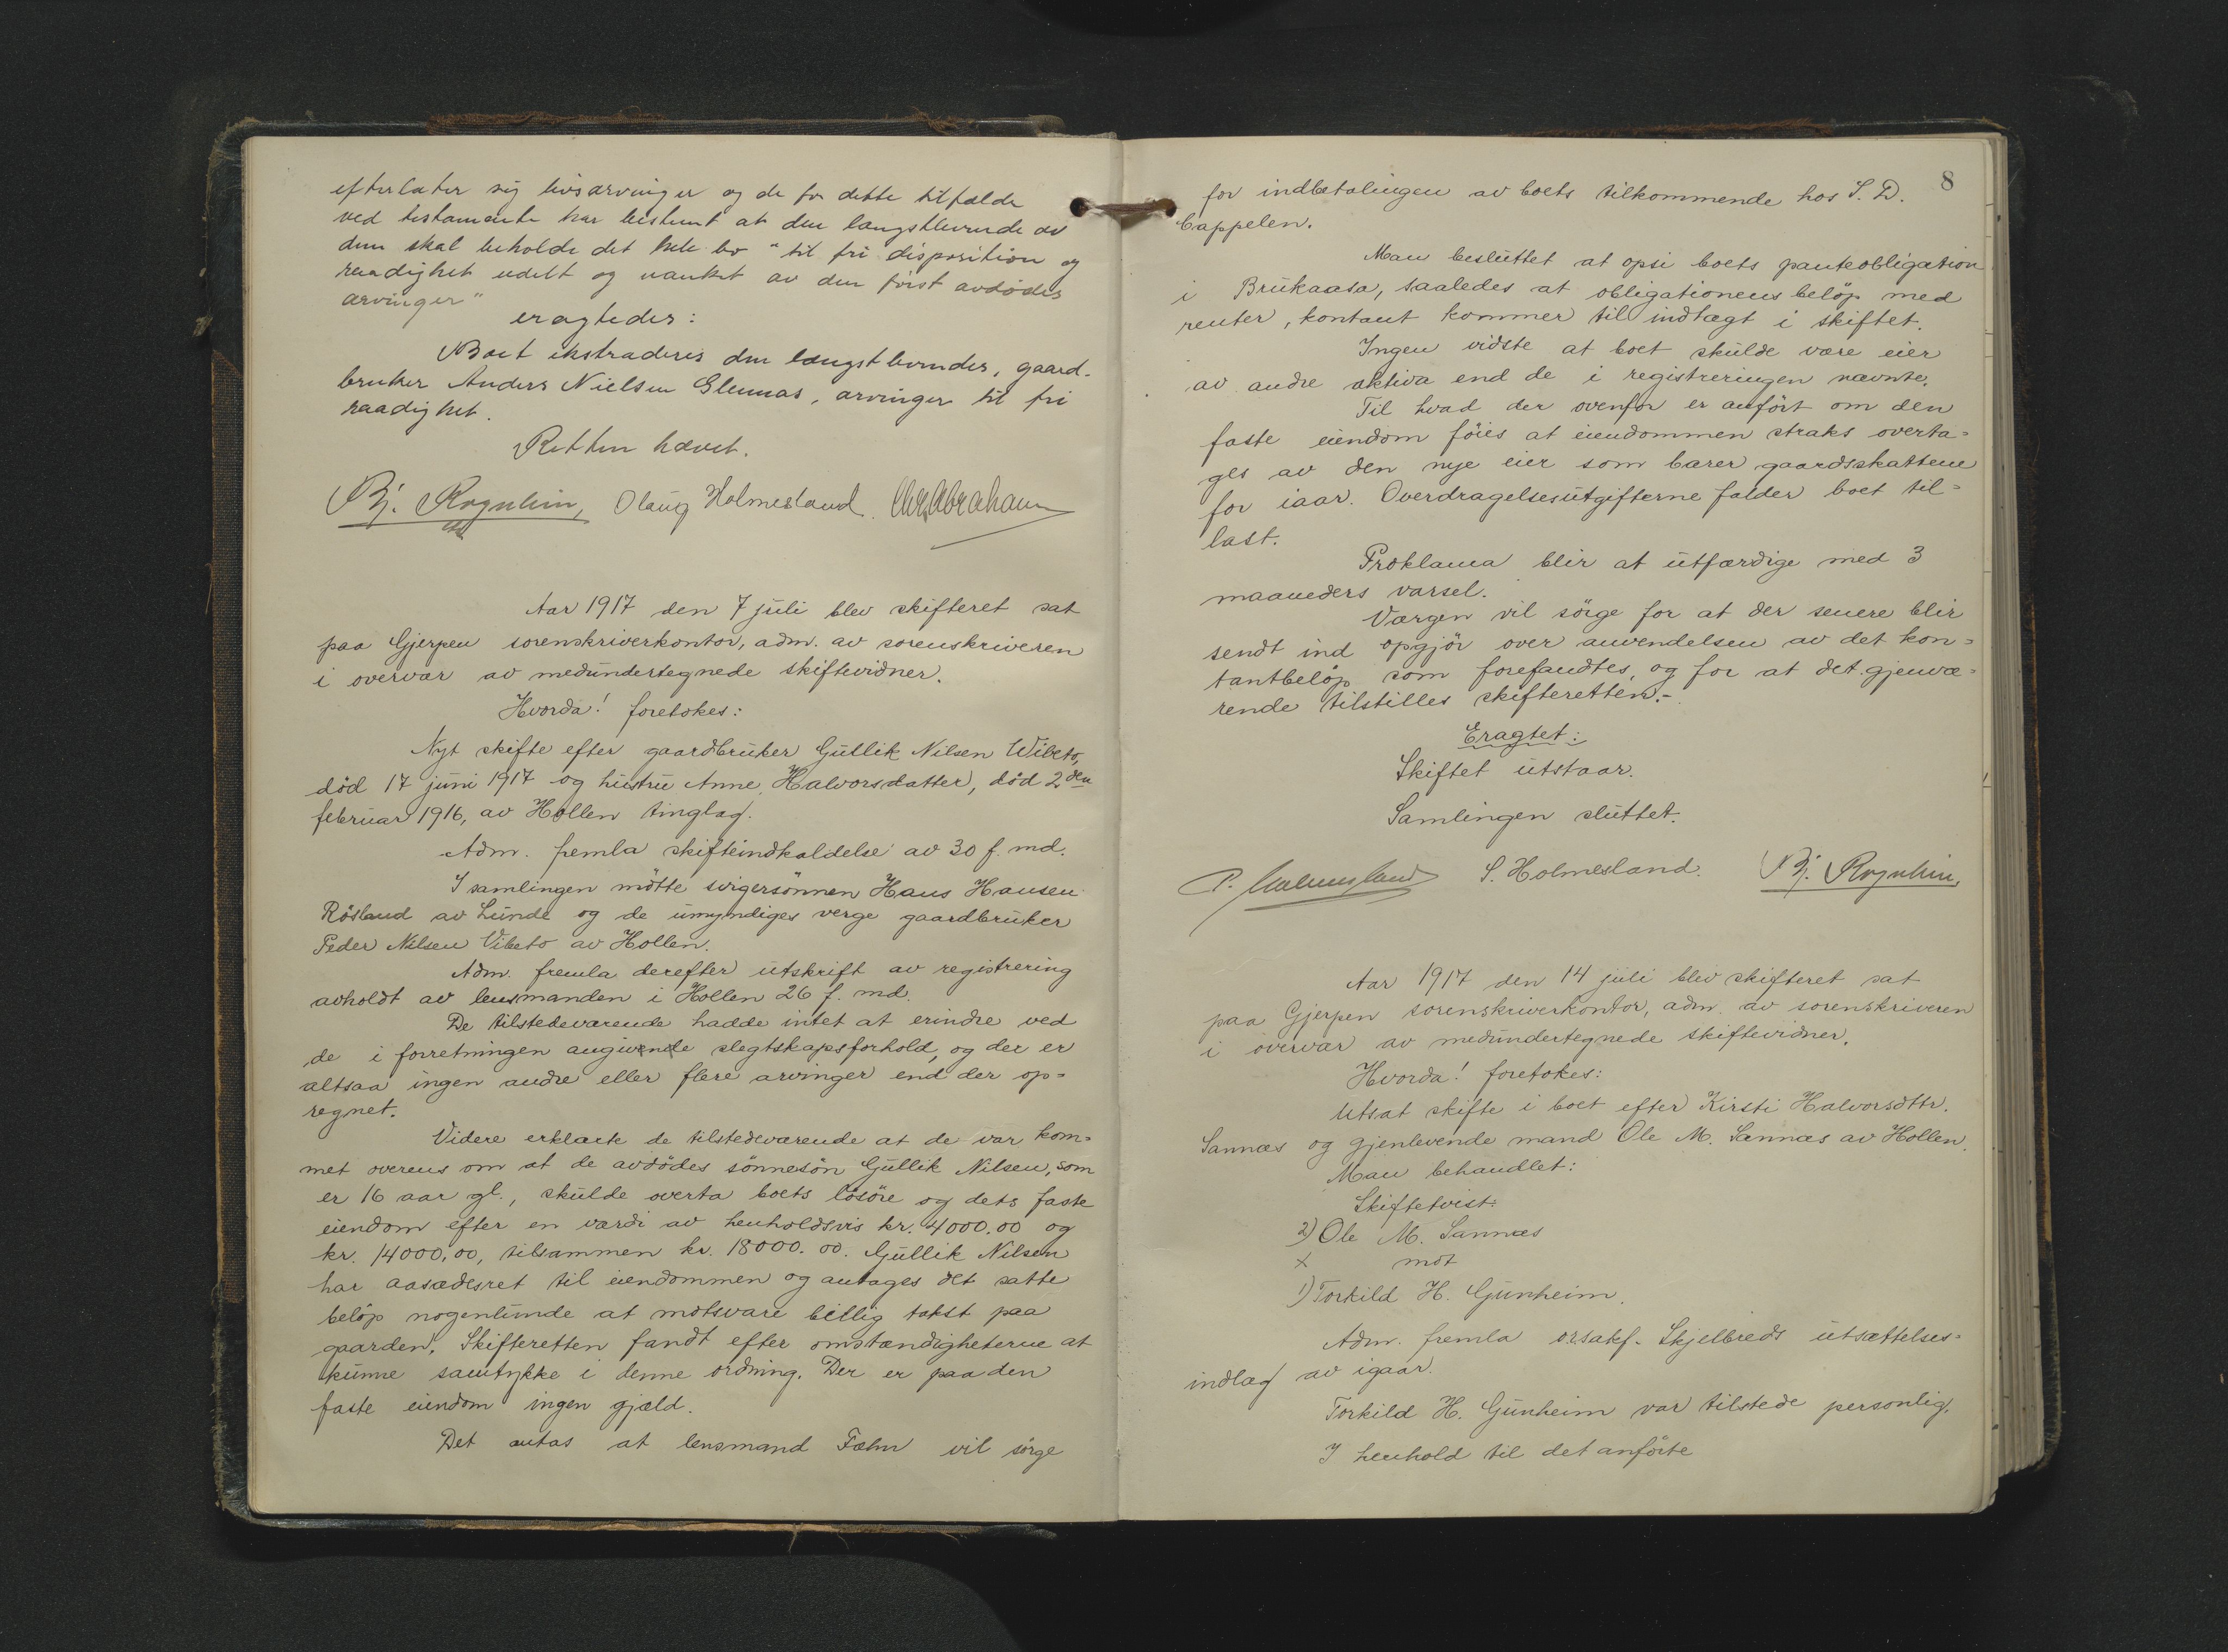 efterlater sig livsarvinger og de for dette tilfælde
ved testamente har bestemt at den længstlevende av
dem skal beholde det hele bo "til fri disposition og
raadighet udelt og uanket av den først avdødes
arvinger"
eragtedes:
Boet ekstraderes den længstlevendes, gaard-
bruker Anders Nielsen Glennas, arvinger til fri
raadighet.
Retten hævet.
Bj. Rognlien, Olaug Holmesland. Chr. Abraham
Aar 1917 den 7 juli blev skifteret sat
paa Gjerpen sorenskriverkontor, adm. av sorenskriveren
i overvær av medundertegnede skiftevidner.
Hvorda! foretokes:
Nyt skifte efter gaardbruker Gullik Nilsen Wibeto,
død 17 juni 1917 og hustru Anne Halvorsdatter, død 2den
februar 1916, av Hollen tinglag.
Adm. femla skifteindkaldelse av 30 f. md.
I samlingen møtte svigersønnen Hans Hansen
Røsland av Lunde og de umyndiges verge gaardbruker
Peder Nilsen Vibeto av Hollen.
Adm. fremla derefter utskrift av registrering
avholdt av lensmanden i Hollen 26 f. md.
De tilstedeværende hadde intet at erindre ved
de i forretningen angivende slegtskapsforhold, og der er
altsaa ingen andre eller flere arvinger end der op=
regnet.
Videre erklærte de tilstedeværende at de var kom=
met overens om at de avdødes sønnesøn Gullik Nilsen, som
er 16 aar gl., skulde overta boets løsøre og dets faste
eiendom efter en værdi av henholdsvis kr. 4000.00 og
kr. 14000,00, tilsammen kr. 18000.00. Gullik Nilsen
har aasædesret til eiendommen og antages det satte
beløp nogenlunde at motsvare billig takst paa
gaarden. Skifteretten fandt efter omstændigheterne at
kunne samtykke i denne ordning. Der er paa den
faste eiendom ingen gjæld.
Det antas at lensmand Fæhn vil sørge
8
for indbetalingen av boets tilkommende hos S. D.
Cappelen.
Man besluttet at opsi boets panteobligation
i Brukaasa, saaledes at obligationens beløp med
renter, kontant kommer til indtægt i skiftet.
Ingen vidste at boet skulde være eier
av andre aktiva end de i registreringen nævnte.
Til hvad der ovenfor er anført om den
faste eiendom føies at eiendommen straks overta=
ges av den nye eier som bærer gaardsskattene
for iaar. Overdragelsesutgifterne falder boet til=
last.
Proklama blir at utfærdige med 3
maaneders varsel.
Værgen vil sørge for at der senere blir
sendt ind opgjør over anvendelsen av det kon=
tantbeløp som forefandtes, og for at det gjenvæ=
rende tilstilles skifteretten.-
Eragtet:
Skiftet utstaar.
Samlingen sluttet.
P. Holmesland S. Holmesland. Bj. Rognlien,
Aar 1917 den 14 juli blev skifteret sat
paa Gjerpen sorenskriverkontor, adm. av sorenskriveren
i overvær av medundertegnede skiftevidner.
Hvorda! foretokes:
Utsat skifte i boet efter Kirsti Halvorsdttr.
Sannæs og gjenlevende mand Ole M. Sannæs av Hollen.
Man behandlet:
Skiftetvist:
2) Ole M. Sannæs
x mot
1) Torkild H. Gunheim.
Adm. fremla orsakf. Skjelbreds utsættelses=
indlæg av igaar.
Torkild H. Gunheim var tilstede personlig.
I henhold til det anførte